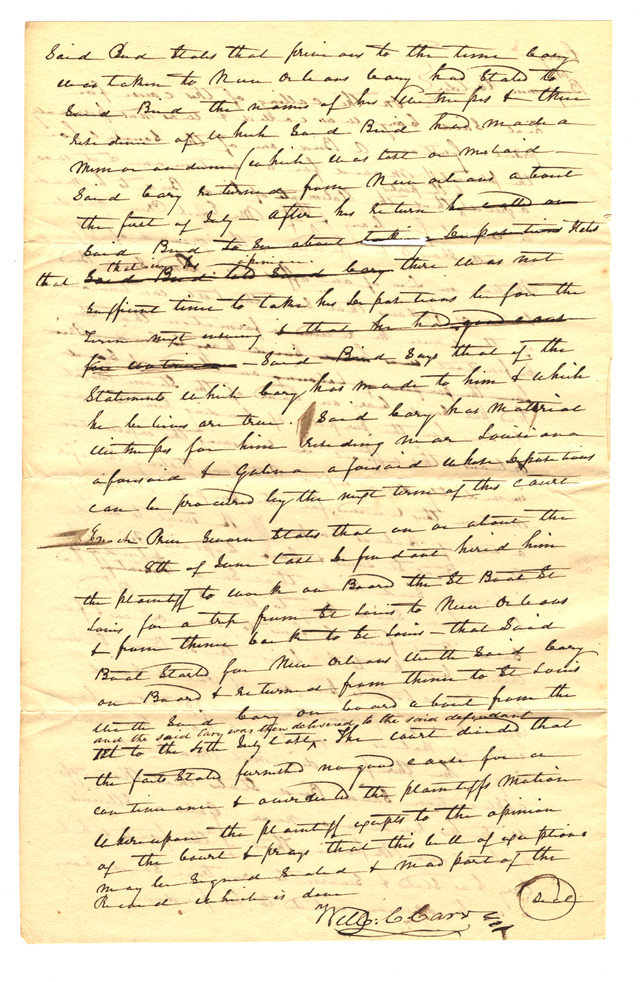 Said Bird States that previous to the time Cary
was taken to New Orleans Cary had Stated to
Said Bird the names of his Witnesses & their
residence of which Said Bird had made a
Memorandum (which was lost or mislaid –
Said Cary returned from New Orleans about
the first of July After his return he called on
Said Bird to See about taking Depositions States
that in his opinion
that Said Bird told Said Cary there was not
Sufficient time to take his Depositions before the
Term next ensuing & that he had good cause
for continuance – Said Bird Says that of the
Statements which Cary has made to him & which
he believes are true. Said Cary has Material
Witnesses for him residing near Louisiana
aforesaid & Galena aforesaid whose Depositions
can be procured by the next term of this Court
Enoch Price Sworn States that on or about the
8th of June last Defendant hired him
the plaintiff to work on Board the St Boat St
Louis for a trip from St Louis to New Orleans
& from thence back to St Louis – that Said
Boat Started for New Orleans with Said Cary
on Board & returned from thence to St Louis
with Said Cary on board about from the
and the said Cary was then delivered to the said defendant
1st to the 4th July last. The court decided that
the facts Stated furnished no good cause for a
continuance & overruled the plaintiffs Motion
Whereupon the plaintiff excepts to the opinion
of the Court & prays that this bill of exceptions
may be Signed Sealed & made part of the
Record which is done
Will: C. Carr
Seal